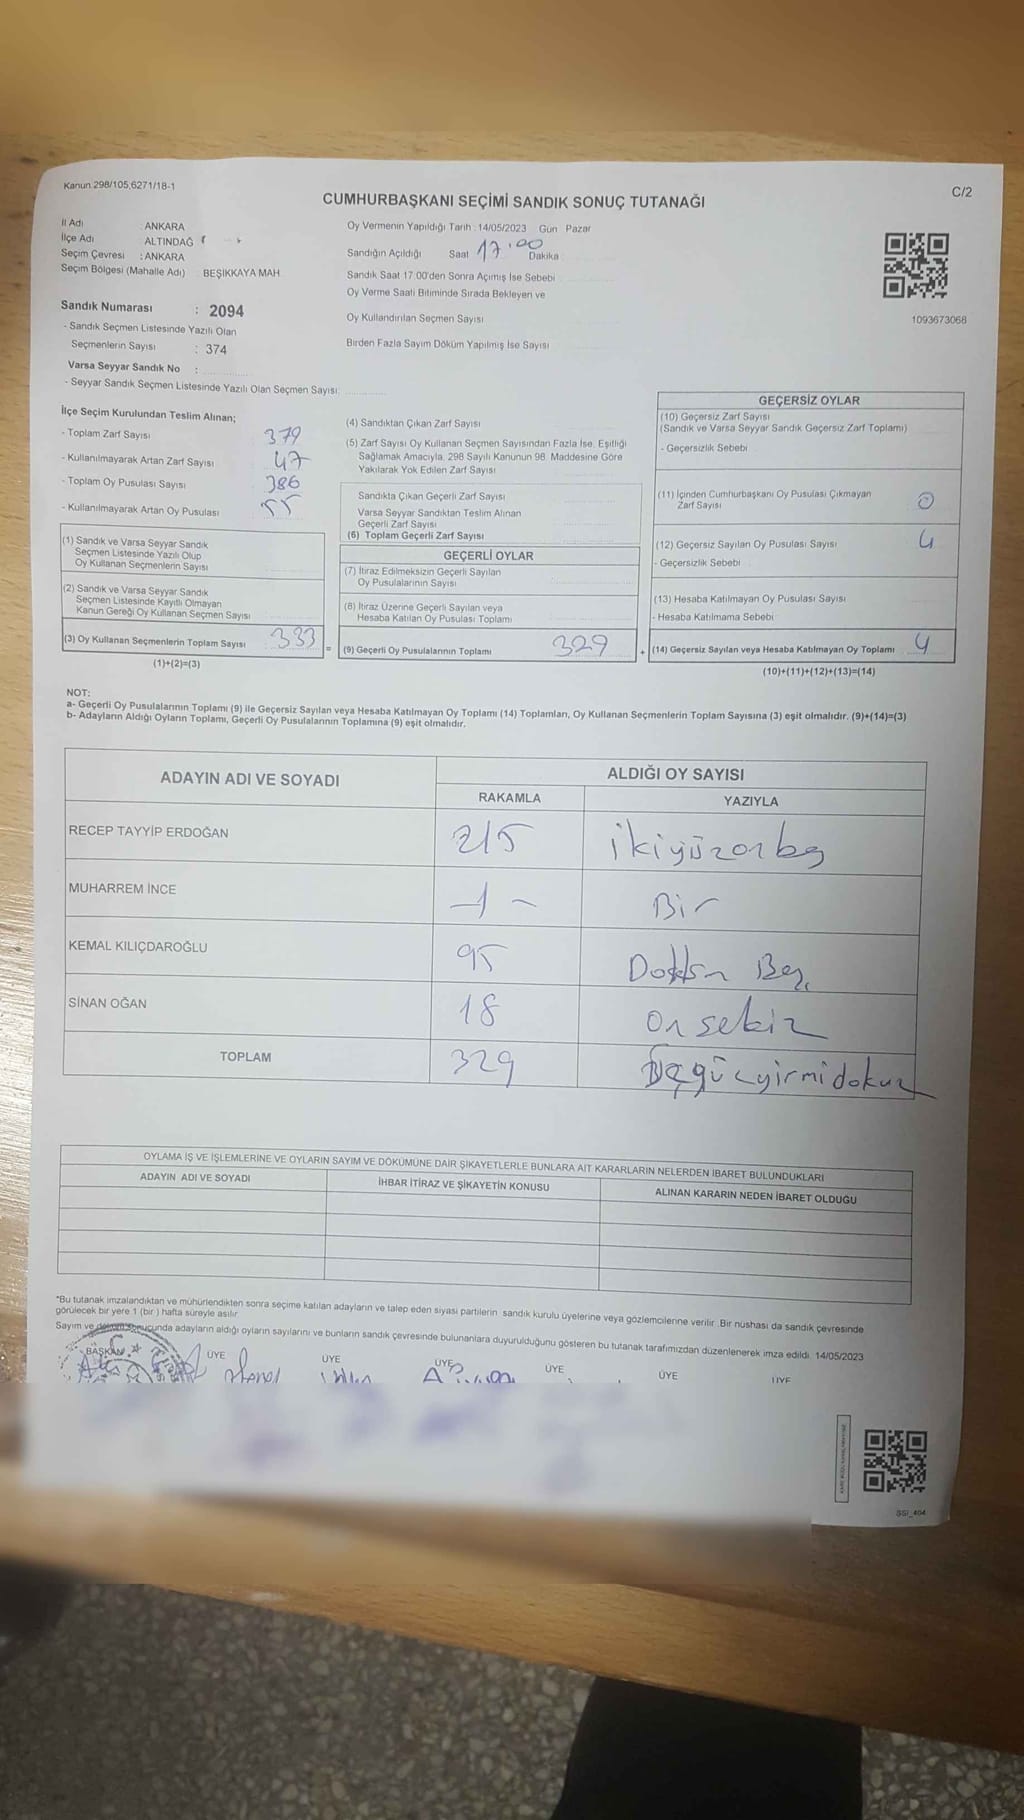 Kanun.298/105,6271/18-1
C/2
CUMHURBAŞKANI SEÇİMİ SANDIK SONUÇ TUTANAĞI
İl Adı : ANKARA
İlçe Adı : ALTINDAĞ
Seçim Çevresi : ANKARA
Seçim Bölgesi (Mahalle Adı) : BEŞIKKAYA MAH
Sandık Numarası : 2094
- Sandık Seçmen Listesinde Yazılı Olan
Seçmenlerin Sayısı : 374
Varsa Seyyar Sandık No :
- Seyyar Sandık Seçmen Listesinde Yazılı Olan Seçmen Sayısı:
Oy Vermenin Yapıldığı Tarih : 14/05/2023 Gün Pazar
Sandığın Açıldığı Saat 17:00 Dakika
Sandık Saat 17.00'den Sonra Açımış İse Sebebi
Oy Verme Saati Bitiminde Sırada Bekleyen ve
Oy Kullandırılan Seçmen Sayısı
Birden Fazla Sayım Döküm Yapılmış İse Sayısı
1093673068
İlçe Seçim Kurulundan Teslim Alınan;
- Toplam Zarf Sayısı 379
- Kullanılmayarak Artan Zarf Sayısı 47
- Toplam Oy Pusulası Sayısı 386
- Kullanılmayarak Artan Oy Pusulası 55
(1) Sandık ve Varsa Seyyar Sandık
Seçmen Listesinde Yazılı Olup
Oy Kullanan Seçmenlerin Sayısı
(2) Sandık ve Varsa Seyyar Sandık
Seçmen Listesinde Kayıtlı Olmayan
Kanun Gereği Oy Kullanan Seçmen Sayısı
(3) Oy Kullanan Seçmenlerin Toplam Sayısı 333 =
(1)+(2)=(3)
(4) Sandıktan Çıkan Zarf Sayısı
(5) Zarf Sayısı Oy Kullanan Seçmen Sayısından Fazla İse, Eşitliği
Sağlamak Amacıyla, 298 Sayılı Kanunun 98. Maddesine Göre
Yakılarak Yok Edilen Zarf Sayısı
Sandıkta Çıkan Geçerli Zarf Sayısı
Varsa Seyyar Sandıktan Teslim Alınan
Geçerli Zarf Sayısı
(6) Toplam Geçerli Zarf Sayısı
GEÇERLİ OYLAR
(7) İtiraz Edilmeksizin Geçerli Sayılan
Oy Pusulalarının Sayısı
(8) İtiraz Üzerine Geçerli Sayılan veya
Hesaba Katılan Oy Pusulası Toplamı
(9) Geçerli Oy Pusulalarının Toplamı 329 +
GEÇERSİZ OYLAR
(10) Geçersiz Zarf Sayısı
(Sandık ve Varsa Seyyar Sandık Geçersiz Zarf Toplamı)
- Geçersizlik Sebebi
(11) İçinden Cumhurbaşkanı Oy Pusulası Çıkmayan
Zarf Sayısı 0
(12) Geçersiz Sayılan Oy Pusulası Sayısı 4
- Geçersizlik Sebebi
(13) Hesaba Katılmayan Oy Pusulası Sayısı
- Hesaba Katılmama Sebebi
(14) Geçersiz Sayılan veya Hesaba Katılmayan Oy Toplamı 4
(10)+(11)+(12)+(13)=(14)
NOT:
a- Geçerli Oy Pusulalarının Toplamı (9) ile Geçersiz Sayılan veya Hesaba Katılmayan Oy Toplamı (14) Toplamları, Oy Kullanan Seçmenlerin Toplam Sayısına (3) eşit olmalıdır. (9)+(14)=(3)
b- Adayların Aldığı Oyların Toplamı, Geçerli Oy Pusulalarının Toplamına (9) eşit olmalıdır.
ADAYIN ADI VE SOYADI
ALDIĞI OY SAYISI
RAKAMLA YAZIYLA
RECEP TAYYİP ERDOĞAN 215 ikiyüzonbeş
MUHARREM İNCE -1- Bir
KEMAL KILIÇDAROĞLU 95 Doksan Beş
SİNAN OĞAN 18 on sekiz
TOPLAM 329
OYLAMA İŞ VE İŞLEMLERİNE VE OYLARIN SAYIM VE DÖKÜMÜNE DAİR ŞİKAYETLERLE BUNLARA AİT KARARLARIN NELERDEN İBARET BULUNDUKLARI
ADAYIN ADI VE SOYADI İHBAR İTİRAZ VE ŞİKAYETİN KONUSU ALINAN KARARIN NEDEN İBARET OLDUĞU
*Bu tutanak imzalandıktan ve mühürlendikten sonra seçime katılan adayların ve talep eden siyasi partilerin sandık kurulu üyelerine veya gözlemcilerine verilir. Bir nüshası da sandık çevresinde
görülecek bir yere 1 (bir) hafta süreyle asılır.
Sayım ve döküm sonucunda adayların aldığı oyların sayılarını ve bunların sandık çevresinde bulunanlara duyurulduğunu gösteren bu tutanak tarafımızdan düzenlenerek imza edildi. 14/05/2023
BAŞKAN ÜYE ÜYE ÜYE ÜYE ÜYE ÜYE
SSI_404